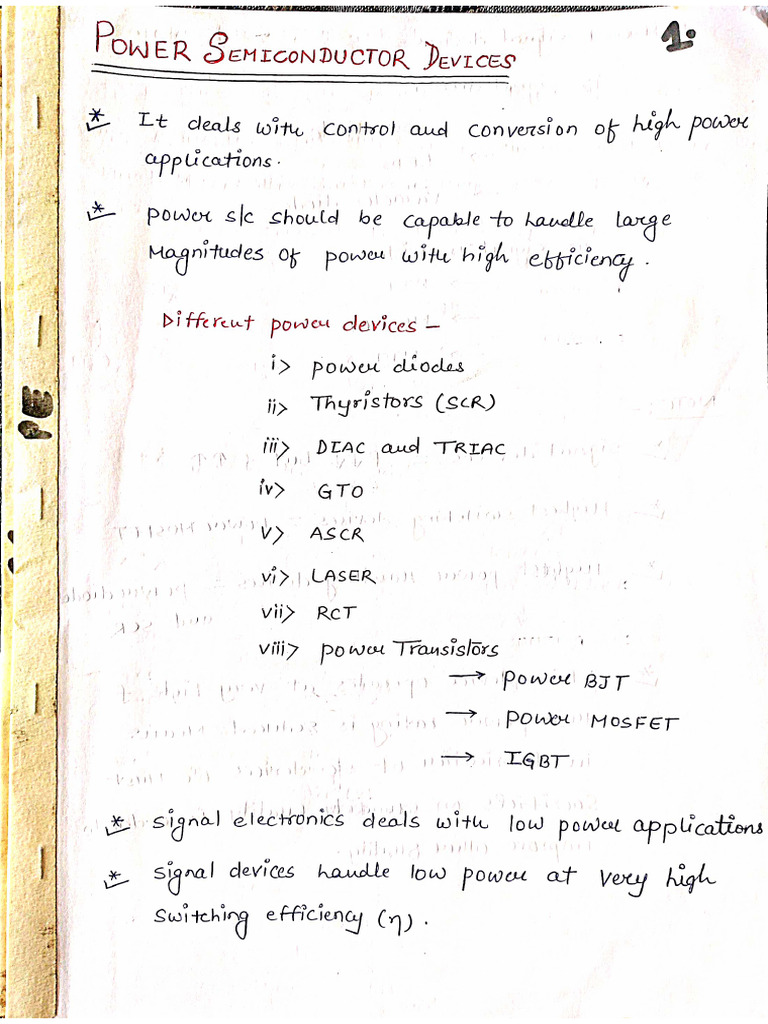 1.
POWER SEMICONDUCTOR DEVICES
* It deals with control and conversion of high power
applications.
* power s/c should be capable to handle large
Magnitudes of power with high efficiency.
Different power devices –
i> power diodes
ii> Thyristors (SCR)
iii> DIAC and TRIAC
iv> GTO
v> ASCR
vi> LASER
vii> RCT
viii> power Transistors
→ power BJT
→ power MOSFET
→ IGBT
* signal electronics deals with low power applications
* signal devices handle low power at very high
switching efficiency (η).
PE